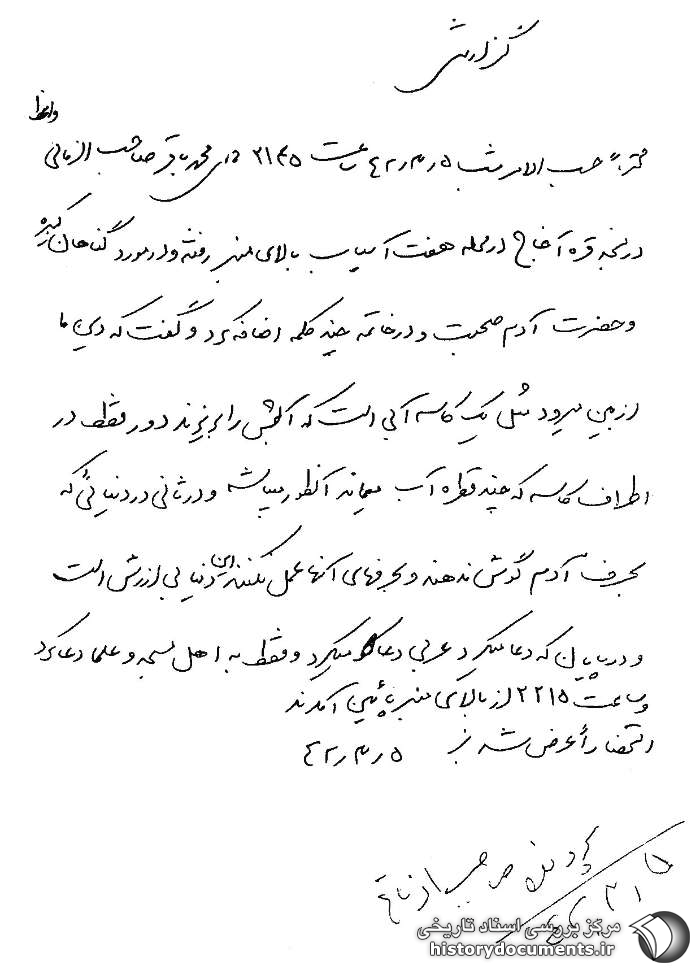 گزارش
واعظ
محترماً حسب الامر شب ۴۲٫۳٫۵ ساعت ۲۱۴۵ آقای محمد باقر صاحب الزمانی
در مسجد قره آغاج در محله هفت آسیاب بالای منبر رفته و در مورد گناهان کبیره
و حضرت آدم صحبت و در خاتمه چند کلمه اضافه کرد و گفت که دین ما
از بین میرود مثل یک کاسه آبی است که آبش را بریزند دور فقط در
اطراف کاسه که چند قطره آب میماند آنطور میباشد و در ثانی در دنیائی که
بحرف آدم گوش ندهند و بحرفهای آنها عمل نکنند این دنیا بی ارزش است
و در پایان که دعا میکرد عربی دعا میکرد و فقط به اهل مسجد و علما دعا کرد
و ساعت ۲۲۱۵ از بالای منبر پائین آمدند
استحضاراً عرض شد ۴۲٫۳٫۵
مرکز بررسی اسناد تاریخی
historydocuments.ir